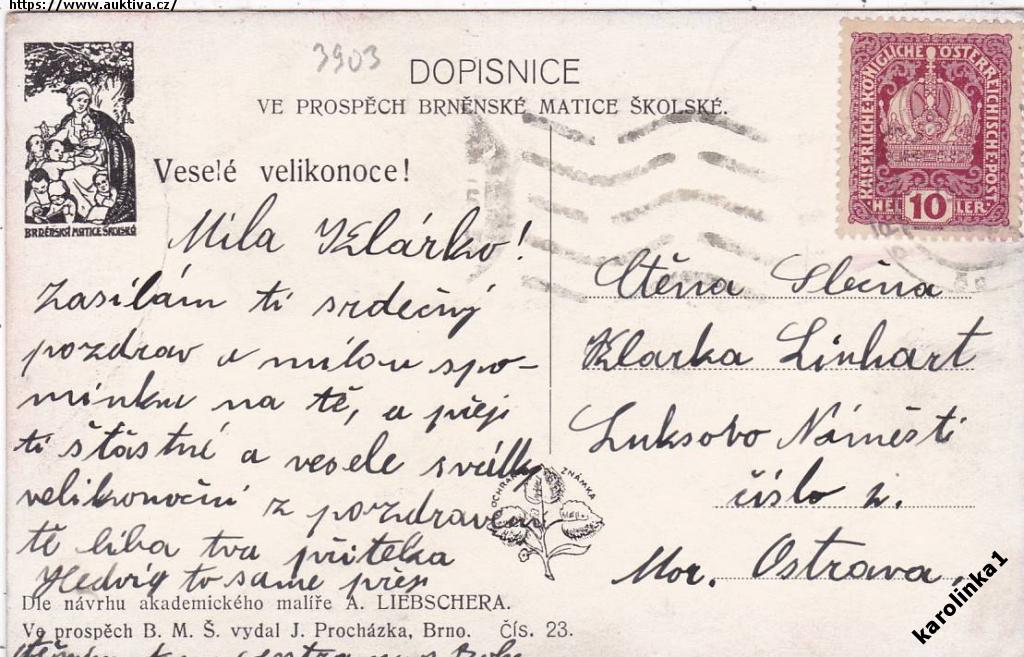 https://www.auktiva.cz/
3903
DOPISNICE
VE PROSPĚCH BRNĚNSKÉ MATICE ŠKOLSKÉ.
KAISERLICHE KÖNIGLICHE ÖSTERREICHISCHE POST
HELLER
10
BRNĚNSKÁ MATICE ŠKOLSKÁ
Veselé velikonoce!
Mila Klárko!
Zasílám ti srdečný
pozdrav a milou spo-
mínku na tě, a přeji
ti šťastné a vesele svátky
velikonoční z pozdravem
tě líba tva přítelka
Hedvig to same přeji
Ctěna Slečna
Klarka Linhart
Luksovo Náměsti
číslo 2.
Mor. Ostrava.
OCHRAN ZNÁMKA
Dle návrhu akademického malíře A. LIEBSCHERA.
Ve prospěch B. M. Š. vydal J. Procházka, Brno. Čís. 23.
karolinka1